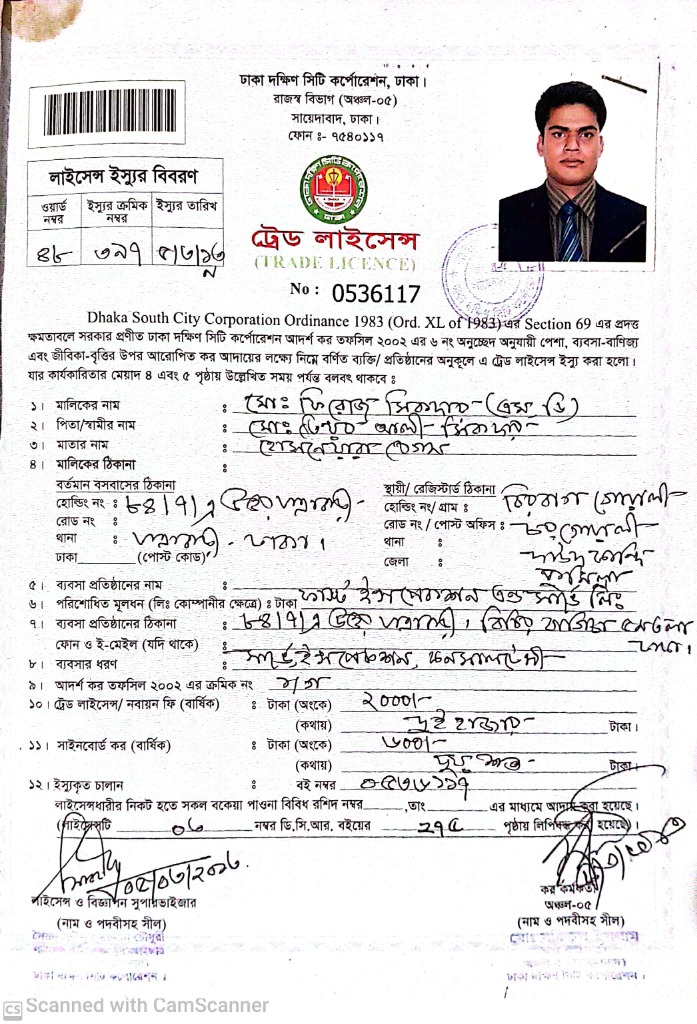 ঢাকা দক্ষিণ সিটি কর্পোরেশন, ঢাকা।
রাজস্ব বিভাগ (অঞ্চল-০৫)
সায়েদাবাদ, ঢাকা।
ফোন ঃ- ৭৫৪০১১৭
লাইসেন্স ইস্যুর বিবরণ
ওয়ার্ড নম্বর ইস্যুর ক্রমিক নম্বর ইস্যুর তারিখ
৪৮ ৩৯৭
ট্রেড লাইসেন্স
(TRADE LICENCE)
No : 0536117
Dhaka South City Corporation Ordinance 1983 (Ord. XL of 1983) এর Section 69 এর প্রদত্ত
ক্ষমতাবলে সরকার প্রণীত ঢাকা দক্ষিণ সিটি কর্পোরেশন আদর্শ কর তফসিল ২০০২ এর ৬ নং অনুচ্ছেদ অনুযায়ী পেশা, ব্যবসা-বাণিজ্য
এবং জীবিকা-বৃত্তির উপর আরোপিত কর আদায়ের লক্ষ্যে নিম্নে বর্ণিত ব্যক্তি/ প্রতিষ্ঠানের অনুকূলে এ ট্রেড লাইসেন্স ইস্যু করা হলো।
যার কার্যকারিতার মেয়াদ ৪ এবং ৫ পৃষ্ঠায় উল্লেখিত সময় পর্যন্ত বলবৎ থাকবে ঃ
১। মালিকের নাম ঃ মোঃ ফিরোজ সিকদার (এম ডি)
২। পিতা/স্বামীর নাম ঃ মোঃ আলী সিকদার
৩। মাতার নাম ঃ হোসনেয়ারা বেগম
৪। মালিকের ঠিকানা ঃ
বর্তমান বসবাসের ঠিকানা
হোল্ডিং নং ঃ ৮৪/৭/এ উত্তর যাত্রাবাড়ী-
রোড নং ঃ
থানা ঃ যাত্রাবাড়ী - ঢাকা।
ঢাকা (পোস্ট কোড)
স্থায়ী/ রেজিস্টার্ড ঠিকানা
হোল্ডিং নং/ গ্রাম ঃ গোয়ালী
রোড নং / পোস্ট অফিস ঃ
থানা ঃ দাউদকান্দি
জেলা ঃ কুমিল্লা
৫। ব্যবসা প্রতিষ্ঠানের নাম ঃ ফার্স্ট ইন্সপেকশন এন্ড সার্ভে লিঃ
৬। পরিশোধিত মূলধন (লিঃ কোম্পানীর ক্ষেত্রে) ঃ টাকা
৭। ব্যবসা প্রতিষ্ঠানের ঠিকানা ঃ ৮৪/৭/এ উত্তর যাত্রাবাড়ী, ঢাকা।
ফোন ও ই-মেইল (যদি থাকে) ঃ
৮। ব্যবসার ধরণ ঃ সার্ভে ইন্সপেকশন, কনসালটেন্সী
৯। আদর্শ কর তফসিল ২০০২ এর ক্রমিক নং
১০। ট্রেড লাইসেন্স/ নবায়ন ফি (বার্ষিক) ঃ টাকা (অংকে) ২০০০/-
(কথায়) দুই হাজার টাকা।
১১। সাইনবোর্ড কর (বার্ষিক) ঃ টাকা (অংকে) ৬০০/-
(কথায়) টাকা।
১২। ইস্যুকৃত চালান ঃ বই নম্বর ০৫৩৬১১৭
লাইসেন্সধারীর নিকট হতে সকল বকেয়া পাওনা বিবিধ রশিদ নম্বর ,তাং এর মাধ্যমে আদায় করা হয়েছে।
(লাইসেন্সটি ০৬ নম্বর ডি.সি.আর. বইয়ের ২৭৫ পৃষ্ঠায় লিপিবদ্ধ করা হয়েছে)।
লাইসেন্স ও বিজ্ঞাপন সুপারভাইজার
(নাম ও পদবীসহ সীল)
কর কর্মকর্তা
অঞ্চল-০৫
(নাম ও পদবীসহ সীল)
ঢাকা দক্ষিণ সিটি কর্পোরেশন।
ঢাকা দক্ষিণ সিটি কর্পোরেশন।
CS Scanned with CamScanner